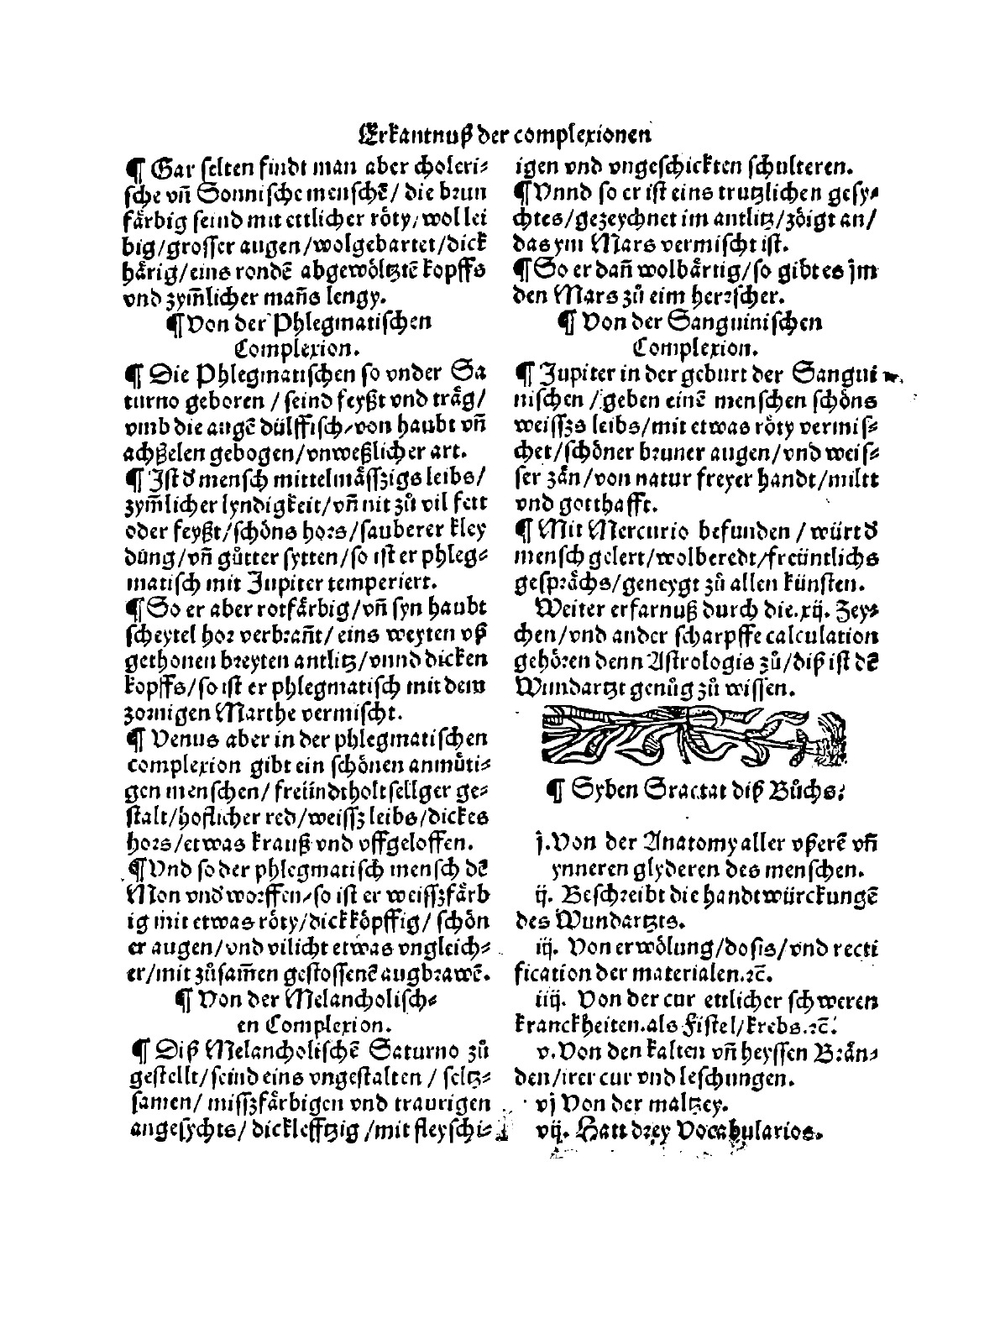 Erkantnuß der complexionen
¶ Gar selten findt man aber choleri⸗
sche vñ Sonnische menschẽ/ die brun
fårbig seind mit ettlicher röty/wol lei
big/grosser augen/wolgebartet/dick
hårig/eins rondẽ abgewöltztẽ kopffs
vnd zym̃licher mañs lengy.
¶ Von der Phlegmatischen
Complexion.
¶ Die Phlegmatischen so vnder Sa
turno geboren / seind feyßt vnd tråg/
vmb die augẽ dülffisch/von haubt vñ
achßelen gebogen/vnweßlicher art.
¶ Ist d' mensch mittelmåsszigs leibs/
zym̃licher lyndigkeit/vñ nit zů vil fett
oder feyßt/schöns hors/sauberer kley
dung/vñ gůtter sytten/so ist er phleg⸗
matisch mit Jupiter temperiert.
¶ So er aber rotfårbig/vñ syn haubt
scheytel hor verbrañt/ eins weyten vß
gethonen breyten antlitz/vnnd dicken
kopffs/so ist er phlegmatisch mit dem
zornigen Marthe vermischt.
¶ Venus aber in der phlegmatischen
complexion gibt ein schönen anmůti⸗
gen menschen/ freündtholtsellger ge⸗
stalt/hoflicher red/weissz leibs/dickes
hors/etwas krauß vnd vffgeloffen.
¶ Vnd so der phlegmatisch mensch dẽ
Mon vnd'worffen/so ist er weisszfårb
ig mit etwas röty/dickköpffig/ schön
er augen/vnd vilicht etwas vngleich⸗
er/mit zůsam̃en gestossenẽ augbrawẽ.
¶ Von der Melancholisch⸗
en Complexion.
¶ Diß Melancholischẽ Saturno zů
gestellt/seind eins vngestalten / seltz⸗
samen/ misszfårbigen vnd traurigen
angesychts/ dicklefftzig /mit fleyschi⸗
igen vnd vngeschickten schulteren.
¶ Vnnd so er ist eins trutzlichen gesy⸗
chtes/gezeychnet im antlitz/zöigt an/
das ym Mars vermischt ist.
¶ So er dañ wolbårtig/so gibt es jm
den Mars zů eim herrscher.
¶ Von der Sanguinischen
Complexion.
¶ Jupiter in der geburt der Sangui
nischen / geben einẽ menschen schöns
weisszs leibs/mit etwas röty vermis⸗
chet/schöner bruner augen/vnd weis⸗
ser zån/von natur freyer handt/miltt
vnd gotthafft.
¶ Mit Mercurio befunden / würt d'
mensch gelert/wolberedt/freüntlichs
gespråchs/geneygt zů allen künsten.
Weiter erfarnuß durch die.xij. Zey⸗
chen/vnd ander scharpffe calculation
gehören denn Astrologis zů/diß ist dẽ
Wundartzt genůg zů wissen.
¶ Syben Tractat diß Bůchs.
j.Von der Anatomy aller vßerẽ vñ
ynneren glyderen des menschen.
ij. Beschreibt die handtwürckungẽ
des Wundartzts.
iij. Von erwölung/dosis/vnd recti
fication der materialen.ꝛc̃.
iiij. Von der cur ettlicher schweren
kranckheiten.als Fistel/krebs.ꝛc̃.
v.Von den kalten vñ heyssen Brån⸗
den/irer cur vnd leschungen.
vj Von der maltzey.
vij. Hatt drey Vocabularios.